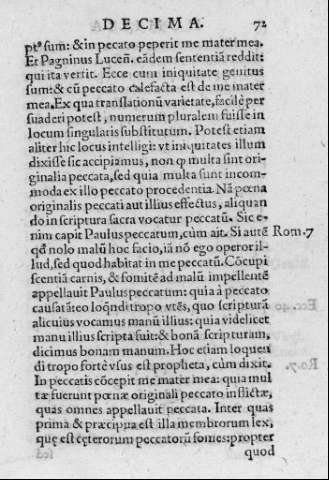 DECIMA. 72
pt⁹ sum: & in peccato peperit me mater mea.
Et Pagninus Lucen̄. eādem sententiā reddit:
qui ita vertit. Ecce cum iniquitate genitus
sum: & cū peccato calefacta est de me mater
mea. Ex qua translationū varietate, facilè per
suaderi potest, numerum pluralem fuisse in
locum singularis substitutum. Potest etiam
aliter hic locus intelligi: vt iniquitates illum
dixisse sic accipiamus, non ꝙ multa sint ori-
ginalia peccata, sed quia multa sunt incom-
moda ex illo peccato procedentia. Nā pœna
originalis peccati aut illius effectus, aliquan
do in scriptura sacra vocatur peccatū. Sic e-
nim capit Paulus peccatum, cùm ait. Si autē Rom. 7
qđ nolo malū hoc facio, iā nō ego operor il-
lud, sed quod habitat in me peccatū. Cōcupi
scentiā carnis, & fomitē ad malū impellentē
appellauit Paulus peccatum: quia à peccato
causatā: eo loq̄ndi tropo vtēs, quo scripturā
alicuius vocamus manū illius: quia videlicet
manu illius scripta fuit: & bonā scripturam,
dicimus bonam manum. Hoc etiam loquen
di tropo fortè vsus est propheta, cùm dixit.
In peccatis cōcepit me mater mea: quia mul
tæ fuerunt pœnæ originali peccato inflictæ,
quas omnes appellauit peccata. Inter quas
prima & præcipua est illa membrorum lex,
quę est cęterorum peccatorū fomes: propter
quod